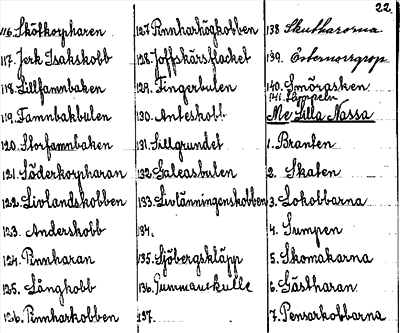 22.
116. Skötkorpharen
117. Jerk Isakskobb
118. Lillfannbaken
119. Fannbakbulen
120. Storfannbaken
121. Söderkorpharan
122. Livlandskobben
123. Anderskobb
124. Rnnharan
125. Långkobb
126. Rnnharkobben
127. Rnnharhögkobben
128. Joffskärsflacket
129. Fingerbulen
130. Anteskobb
131. Sillgrundet
132. Galeasbulen
133. Livlänningenskobben
134.
135. Sjöbergskläpp
136. Gummarkulle
137.
138 Skutharorna
139. Östernorrgrop
140. Smörasken
141. Hoppeln
Me Lilla Nassa
1. Branten
2. Skaten
3. Lokobbarna
4. Sumpen
5. Skomakarna
6. Gåstharan
7. Pensarkobbarna